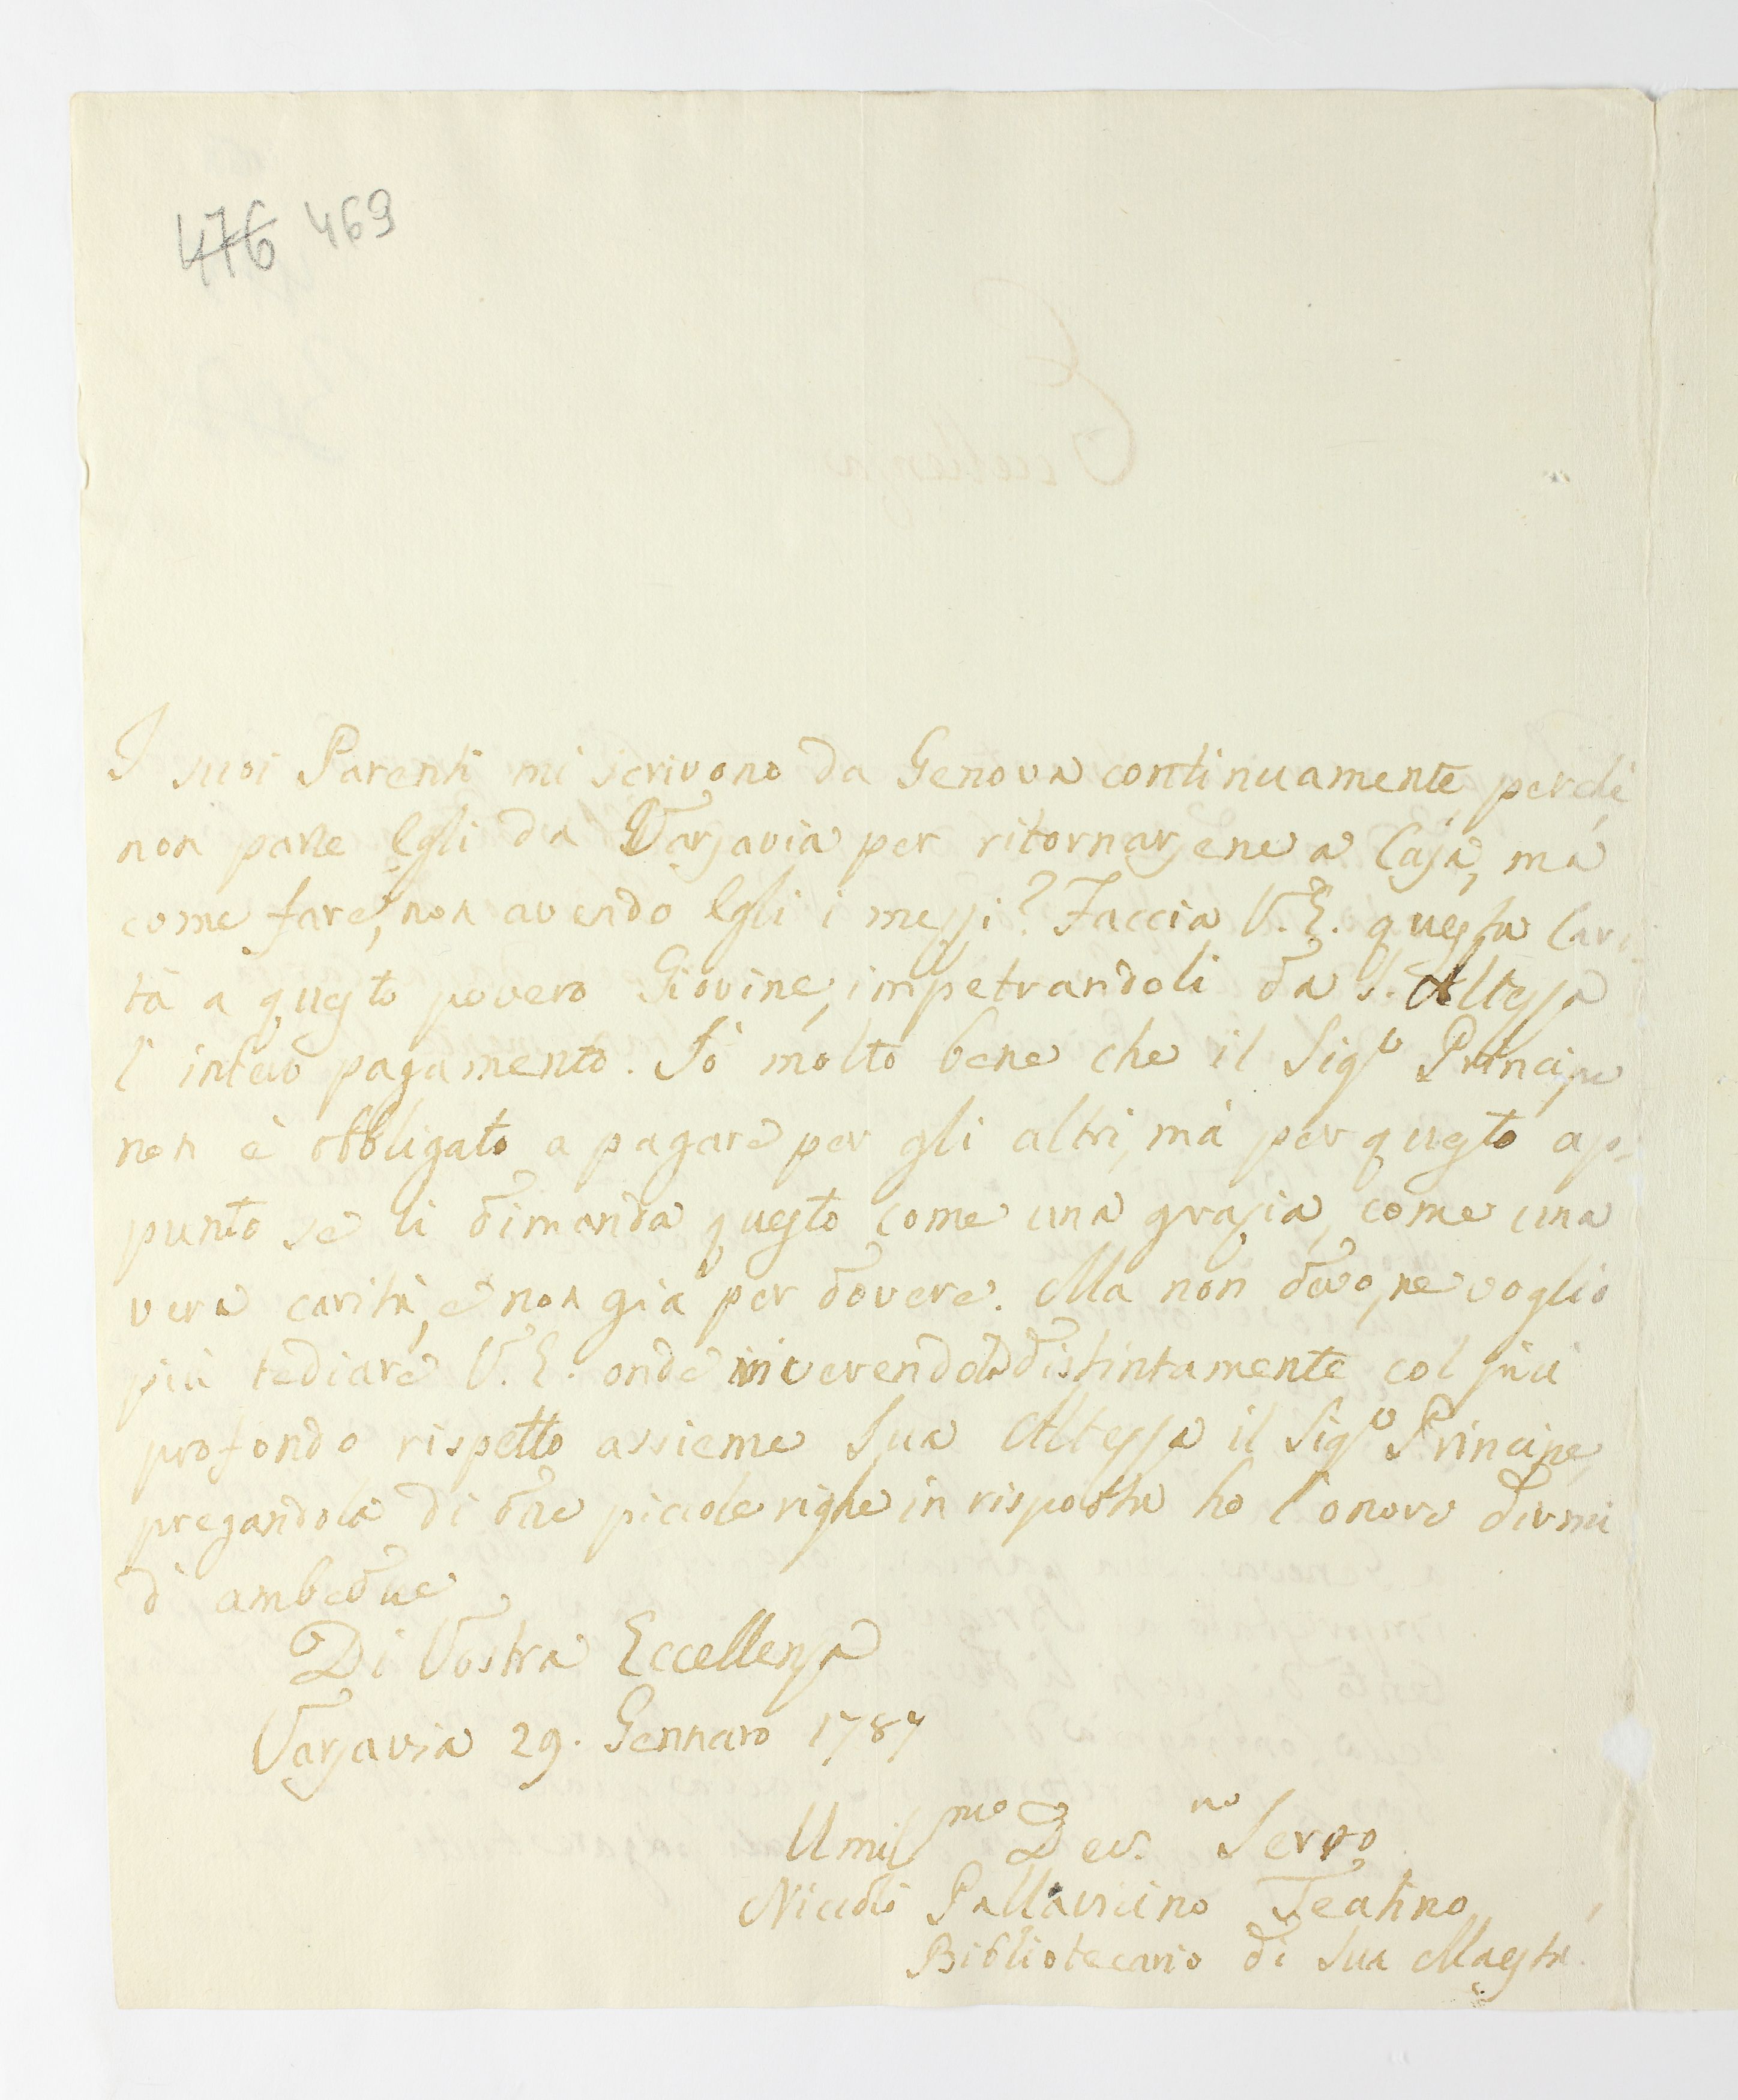 476 469
I suoi Parenti mi scrivono da Genova continuamente, perchè
non parte Egli da Varsavia per ritornarsene a Casa, mà
come fare, non avendo Egli i mezzi? Faccia V.E. questa Cari-
tà a questo povero Giovine, impetrandoli da S. Altezza
l'intero pagamento. Sò molto bene che il Sigr Principe
non è obbligato a pagare per gli altri, mà per questo ap-
punto se li dimanda questo come una grazia, come una
vera carità, e non già per dovere. Ma non devo, ne voglio
più tediare V.E. onde riverendola distintamente col più
profondo rispetto assieme Sua Altezza il Sigr Principe,
pregandola di due piccole righe in risposta ho l'onore dirmi
d'ambedue
Di Vostra Eccellenza
Varsavia 29. Gennaro 1787
Umilmo Dev.mo Servo
Niccolò Pallavicino Teatino
Bibliotecario di Sua Maestà.